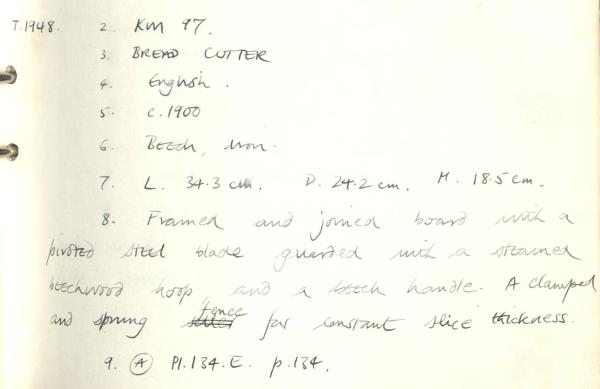 T.1948. 2. KM 97.
3. BREAD CUTTER
4. English.
5. c.1900
6. Beech, iron.
7. L. 34.3 cm. D. 24.2 cm. H. 18.5 cm.
8. Framed and joined board with a
pivoted steel blade guarded with a steamed
beechwood hoop and a beech handle. A clamped
and sprung fence for constant slice thickness.
9. A Pl.134.E. p.134.